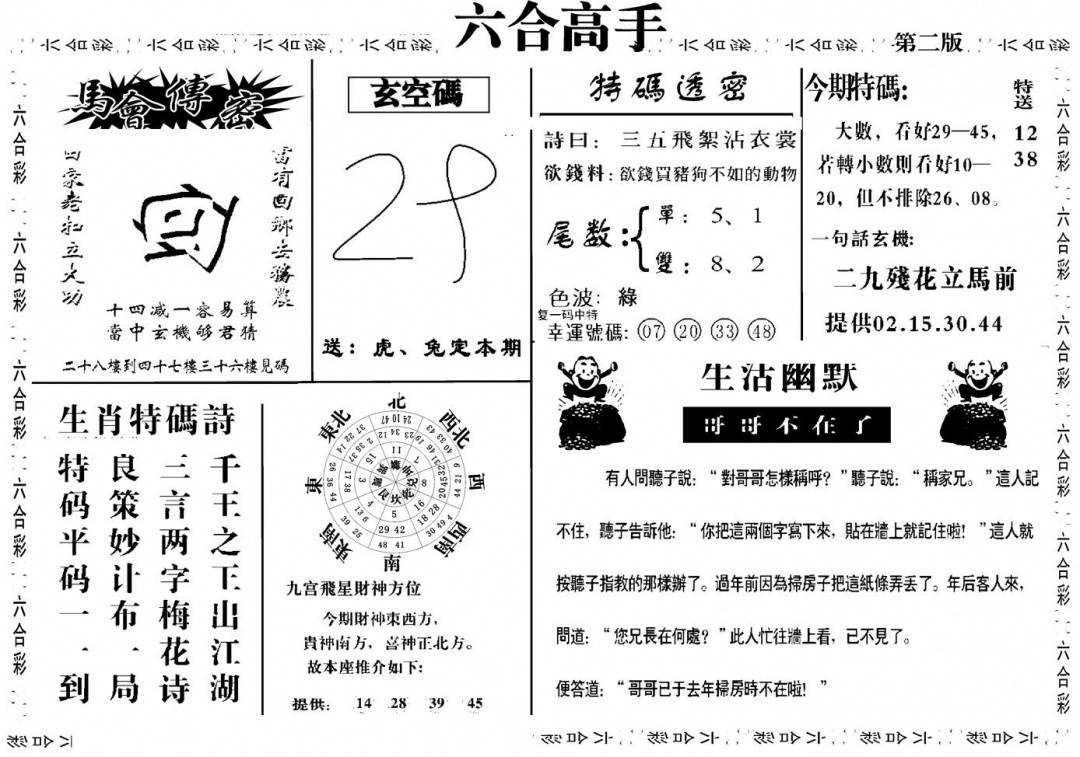 六合高手
第二版
馬會傳密
當有回鄉去務農
四家老扣立大功
十四减一容易算
當中玄機够君猜
二十八樓到四十七樓三十六樓見碼
玄空碼
29
送：虎、兔定本期
特碼透密
詩曰：三五飛絮沾衣裳
欲錢料：欲錢買豬狗不如的動物
尾数：
單：5、1
雙：8、2
色波：綠
复一码中特
幸運號碼：07 20 33 48
今期特碼：
特送
12
38
大數，看好29—45，
若轉小數則看好10—
20，但不排除26、08。
一句話玄機：
二九殘花立馬前
提供02.15.30.44
生肖特碼詩
千王之王出江湖
三言两字梅花诗
良策妙计布一局
特码平码一一到
北
西北
西
西南
南
東南
東
東北
九宫飛星財神方位
今期財神東西方，
貴神南方，喜神正北方。
故本座推介如下：
提供： 14 28 39 45
生活幽默
哥哥不在了
有人問聽子說：“對哥哥怎樣稱呼？”聽子說：“稱家兄。”這人記
不住，聽子告訴他：“你把這兩個字寫下來，貼在牆上就記住啦！”這人就
按聽子指教的那樣辦了。過年前因為掃房子把這紙條弄丢了。年后客人來，
問道：“您兄長在何處？”此人忙往牆上看，已不見了。
便答道：“哥哥已于去年掃房時不在啦！”
六合彩